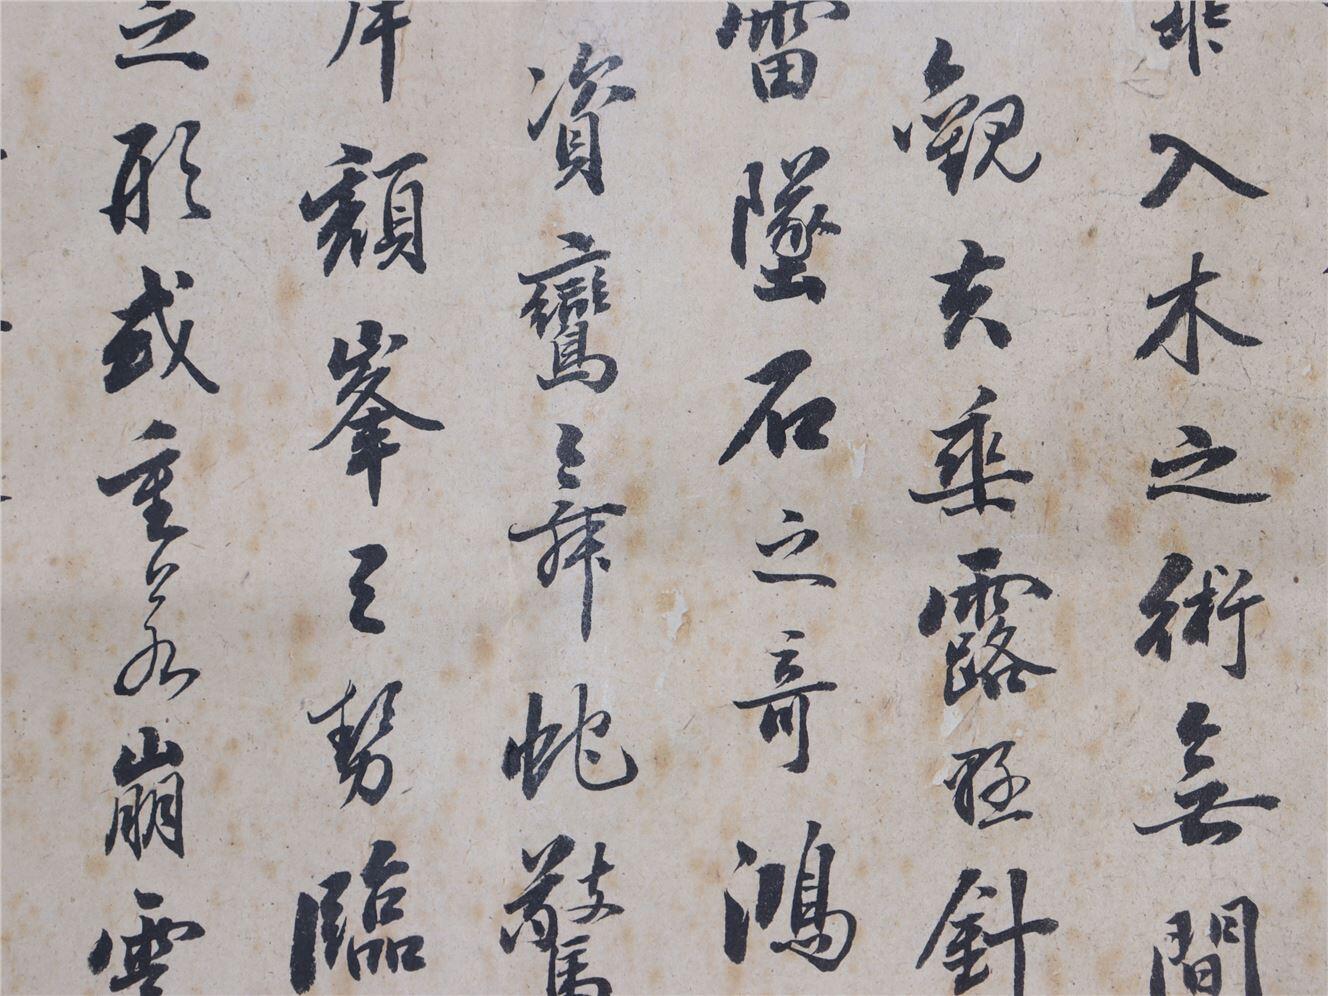 入木之術無間
觀夫垂露懸針
雷墜石之奇鴻
資鸞〻舞蛇驚
岸頹峯之勢臨
之形或重若崩雲